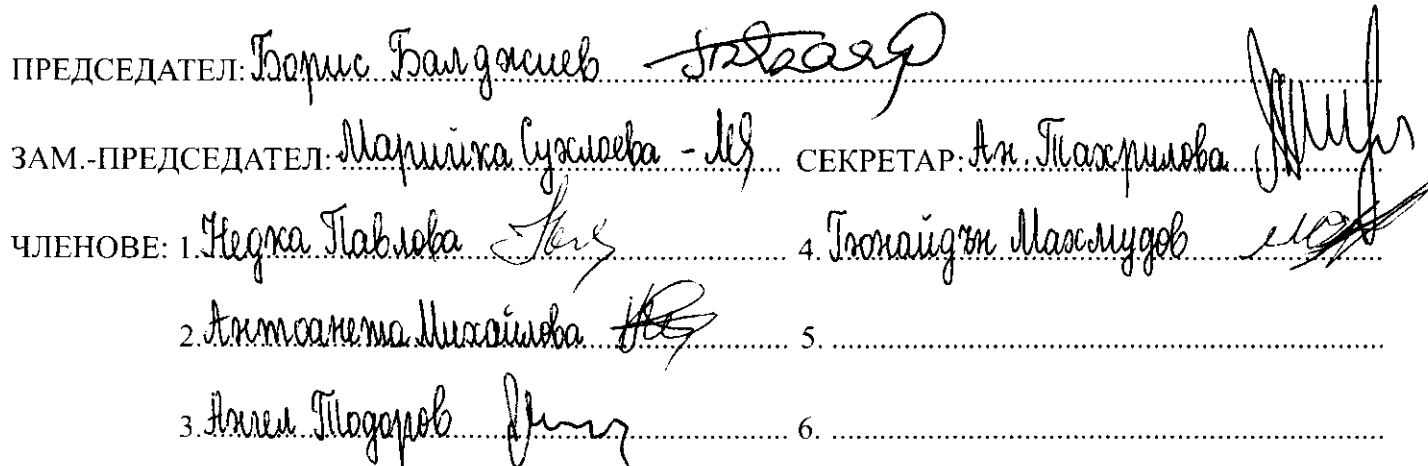 ПРЕДСЕДАТЕЛ: Борис Балджиев
ЗАМ.-ПРЕДСЕДАТЕЛ: Марийка Сухлоева СЕКРЕТАР: Ан. Тахрилова
ЧЛЕНОВЕ: 1. Недка Павлова 4. Гюнайдън Махмудов
2. Антоанета Михайлова 5.
3. Ангел Тодоров 6.